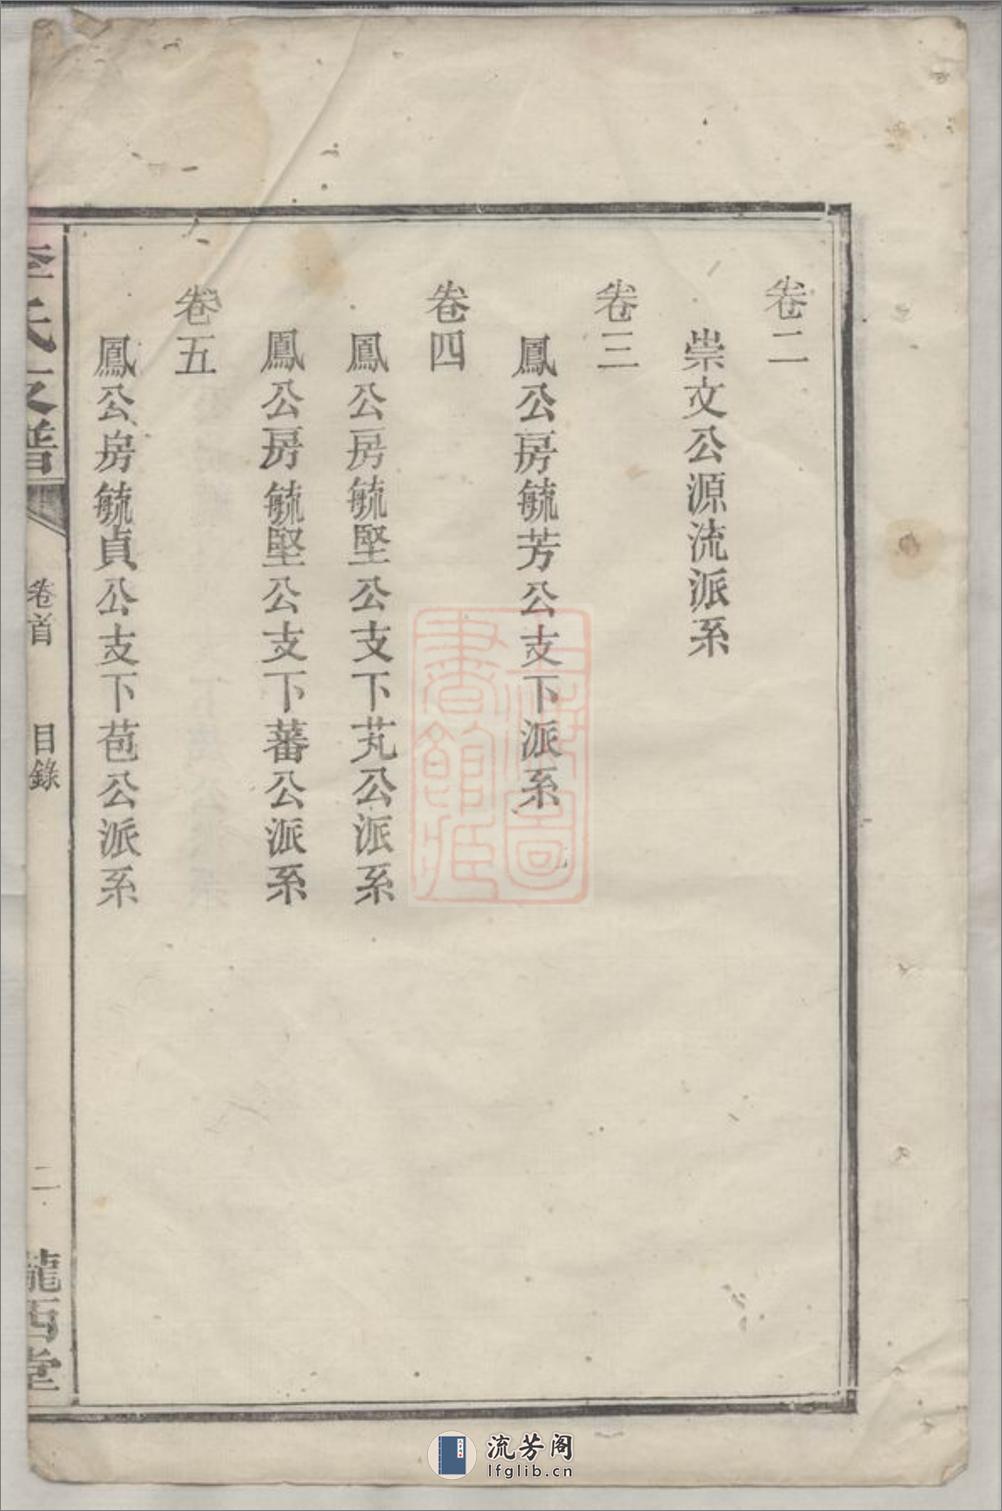 卷二
崇文公源流派系
卷三
鳳公房毓芳公支下派系
卷四
鳳公房毓堅公支下芃公派系
鳳公房毓堅公支下蕃公派系
卷五
鳳公房毓貞公支下苞公派系
李氏支譜
卷首
目錄
二
隴西堂
上海圖書館藏
流芳阁
lfglib.cn